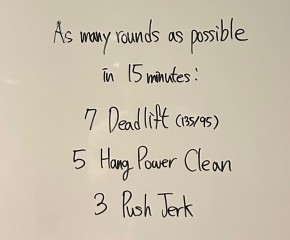 As many rounds as possible
in 15 minutes:
7 Deadlift (135/95)
5 Hang Power Clean
3 Push Jerk